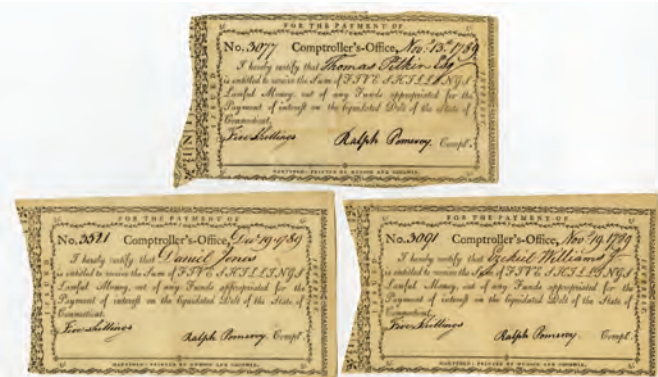 FOR THE PAYMENT OF
No. 3077 Comptroller's-Office, Nov.r 13.th 1789
I hereby certify that Thomas Pitkin Esq
is entitled to receive the Sum of FIVE SHILLINGS
Lawful Money, out of any Funds appropriated for the
Payment of interest on the liquidated Debt of the State of
Connecticut.
Five Shillings Ralph Pomeroy, Compt.r
HARTFORD: PRINTED BY HUDSON AND GOODWIN.
ISSUED
INTEREST
FOR THE PAYMENT OF
No. 3321 Comptroller's-Office, Dec.r 19 1789
I hereby certify that Daniel Jones
is entitled to receive the Sum of FIVE SHILLINGS
Lawful Money, out of any Funds appropriated for the
Payment of interest on the liquidated Debt of the State of
Connecticut.
Five Shillings
Ralph Pomeroy, Compt.r
HARTFORD: PRINTED BY HUDSON AND GOODWIN.
ISSUED
INTEREST
FOR THE PAYMENT OF
No. 3091 Comptroller's-Office, Nov.r 19 1789
I hereby certify that Ezekiel Williams
is entitled to receive the Sum of FIVE SHILLINGS
Lawful Money, out of any Funds appropriated for the
Payment of interest on the liquidated Debt of the State of
Connecticut.
Five Shillings
Ralph Pomeroy, Compt.r
HARTFORD: PRINTED BY HUDSON AND GOODWIN.
ISSUED
INTEREST